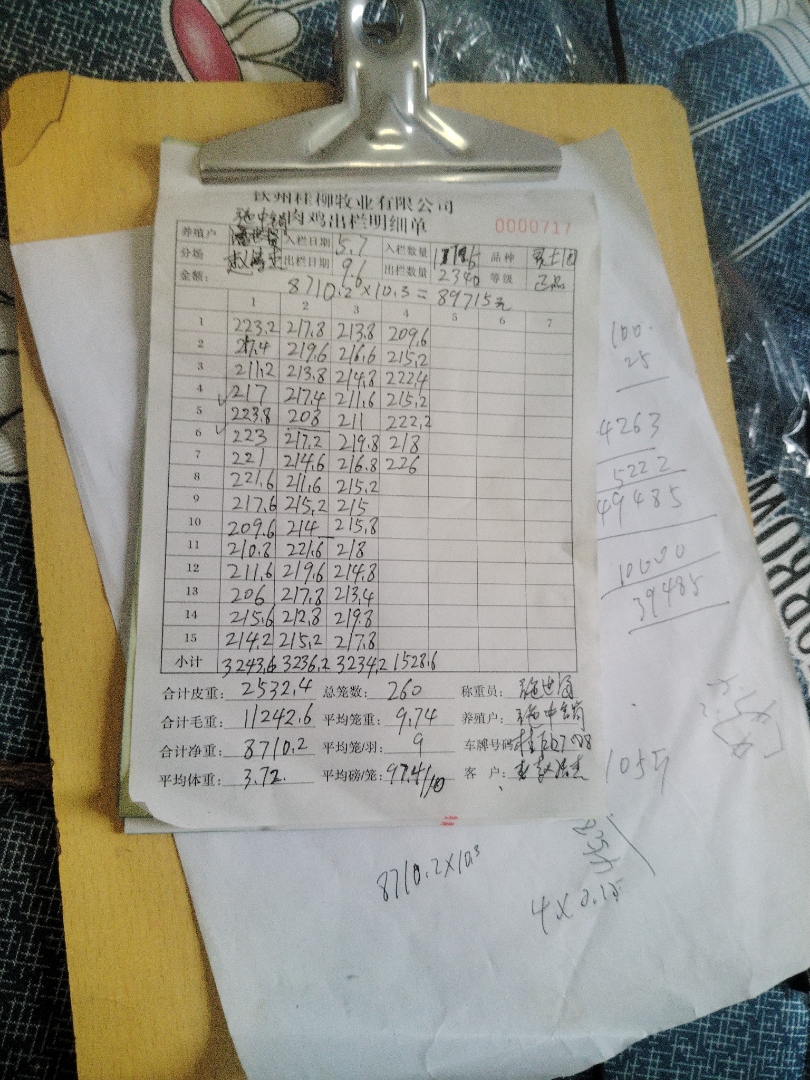 钦州桂柳牧业有限公司
肉鸡出栏明细单 0000717
养殖户 入栏日期 5.7 入栏数量 品种
分场 出栏日期 9.6 出栏数量 2340 等级 正品
金额: 8710.2×10.3=89715元
1 2 3 4 5 6 7
1 223.2 217.8 213.8 209.6
2 217.4 219.6 216.6 215.2
3 211.2 213.8 214.8 222.4
4 217 217.4 211.6 215.2
5 223.8 208 211 222.2
6 223 217.2 219.8 218
7 221 214.6 216.8 226
8 221.6 211.6 215.2
9 217.6 215.2 215
10 209.6 214 215.8
11 210.8 221.6 218
12 211.6 219.6 214.8
13 206 217.8 213.4
14 215.6 212.8 219.8
15 214.2 215.2 217.8
小计 3243.6 3236.2 3234.2 1528.6
合计皮重: 2532.4 总笼数: 260 称重员:
合计毛重: 11242.6 平均笼重: 9.74 养殖户:
合计净重: 8710.2 平均笼/羽: 9 车牌号码
平均体重: 3.72. 平均磅/笼: 97.4/10 客 户:
100.
25
4263
5222
49485
10000
39485
8710.2×10.3
4×0.15